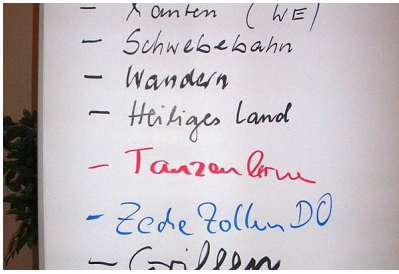 - Xanten (WE)
- Schwebebahn
- Wandern
- Heiliges Land
- Tanzen lerne
- Zeche Zollern DO
- Grillen